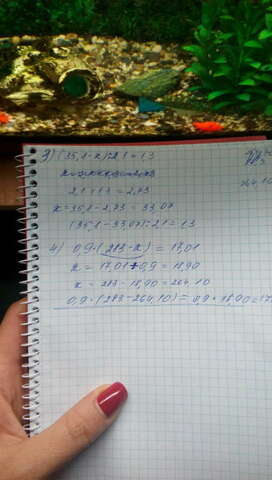 3) (35,8-x):2,1=1,3
2,1·1,3=2,73
x=35,8-2,73=33,07
(35,8-33,07):2,1=1,3
4) 0,9·(283-x)=17,01
x=17,01:0,9=18,90
x=283-18,90=264,10
0,9·(283-264,10)=0,9·18,90=17,